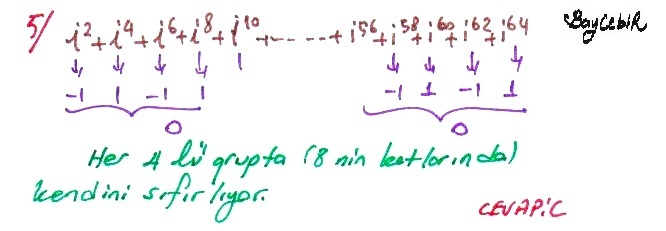 5/ i² + i⁴ + i⁶ + i⁸ + i¹⁰ + - - - - - + i⁵⁶ + i⁵⁸ + i⁶⁰ + i⁶² + i⁶⁴ BayCebiR
-1 1 -1 1 -1 1 -1 1
0 0
Her 4 lü grupta (8 nin katlarında)
kendini sıfırlıyor.
CEVAP: C